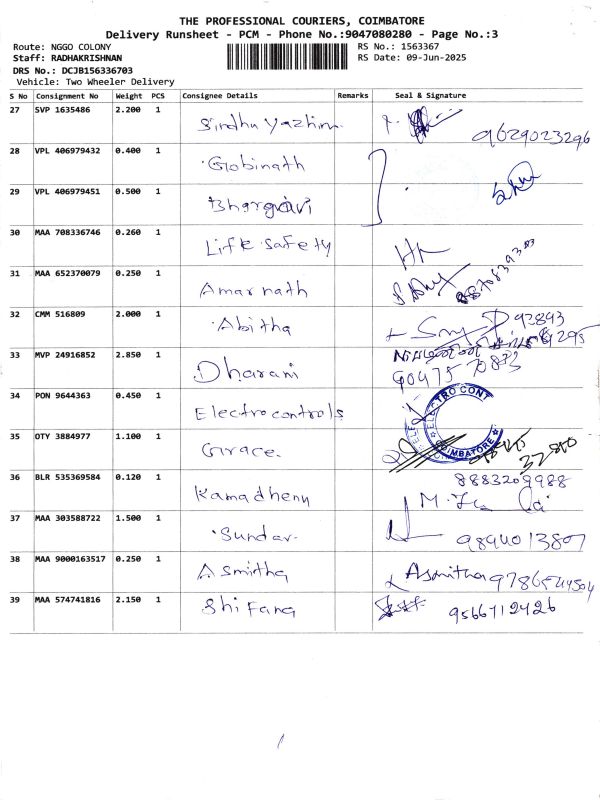 THE PROFESSIONAL COURIERS, COIMBATORE
Delivery Runsheet - PCM - Phone No.:9047080280 - Page No.:3
Route: NGGO COLONY
RS No.: 1563367
Staff: RADHAKRISHNAN
RS Date: 09-Jun-2025
DRS No.: DCJB156336703
Vehicle: Two Wheeler Delivery
S No Consignment No Weight PCS Consignee Details Remarks Seal & Signature
27 SVP 1635486 2.200 1 Sindhu Yazhini 9629023296
28 VPL 406979432 0.400 1 Gobinath
29 VPL 406979451 0.500 1 Bhargavi
30 MAA 708336746 0.260 1 Life Safety
31 MAA 652370079 0.250 1 Amarnath
32 CMM 516809 2.000 1 Abitha
33 MVP 24916852 2.850 1 Dharani
90475 70833
34 PON 9644363 0.450 1 Electrocontrols
ELECTRO CONT
COIMBATORE
35 OTY 3884977 1.100 1 Grace
36 BLR 535369584 0.120 1 Kamadhenu 8883209988
37 MAA 303588722 1.500 1 Sundar 9894013807
38 MAA 9000163517 0.250 1 Asmitha Asmitha
39 MAA 574741816 2.150 1 Shifana 9566712426